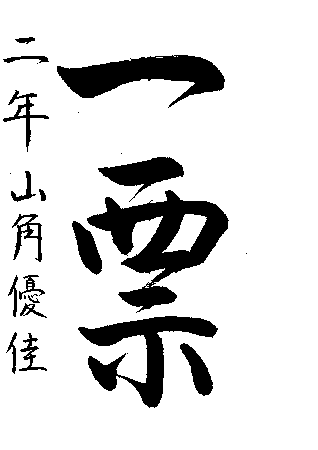 一票
二年山角優佳